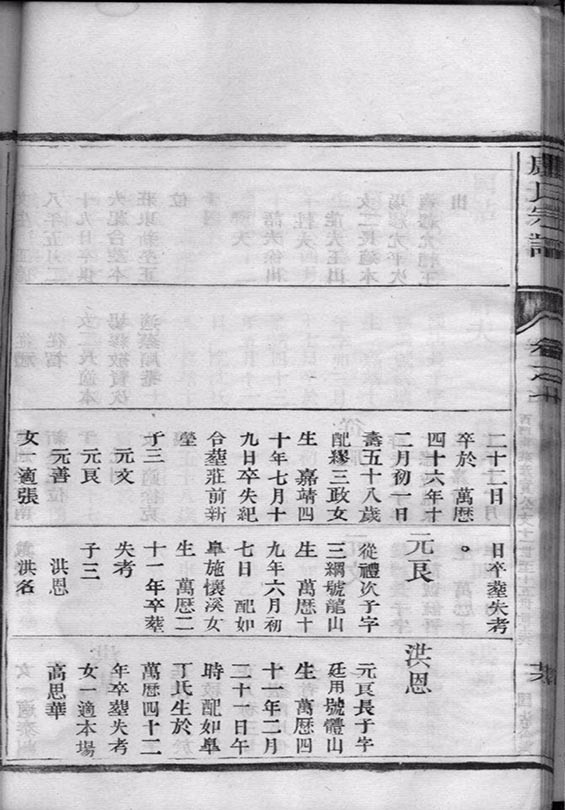 盧氏宗譜
二十二日月
卒於 萬曆
四十六年十
二月初一日
壽五十八歲
配繆三政女
生 嘉靖四
十年七月十
九日卒失紀
合塟莊前新
塋
子三
元文
元良
元善
女適張
日卒塟失考
。
元良
從禮次子字
三綱號龍山
生 萬曆十
九年六月初
七日 配如
臯施懷溪女
生 萬曆二
十一年卒塟
失考
子三
洪恩
洪名
洪恩
元良長子字
廷用號體山
生 萬曆四
十一年二月
二十一日午
時配如臯
丁氏生於
萬曆四十二
年卒塟失考
女一適本場
高思華